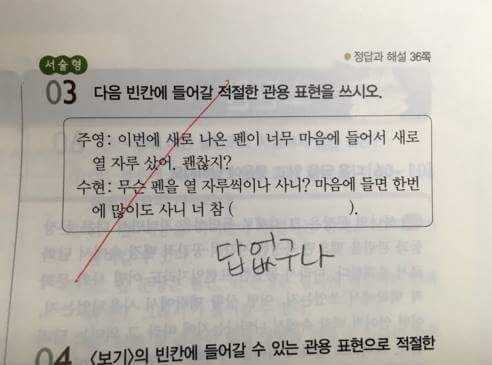 정답과 해설 36쪽
서술형
03 다음 빈칸에 들어갈 적절한 관용 표현을 쓰시오.
주영: 이번에 새로 나온 펜이 너무 마음에 들어서 새로
열 자루 샀어. 괜찮지?
수현: 무슨 펜을 열 자루씩이나 사니? 마음에 들면 한번
에 많이도 사니 너 참 ( ).
답없구나
04 〈보기〉의 빈칸에 들어갈 수 있는 관용 표현으로 적절한